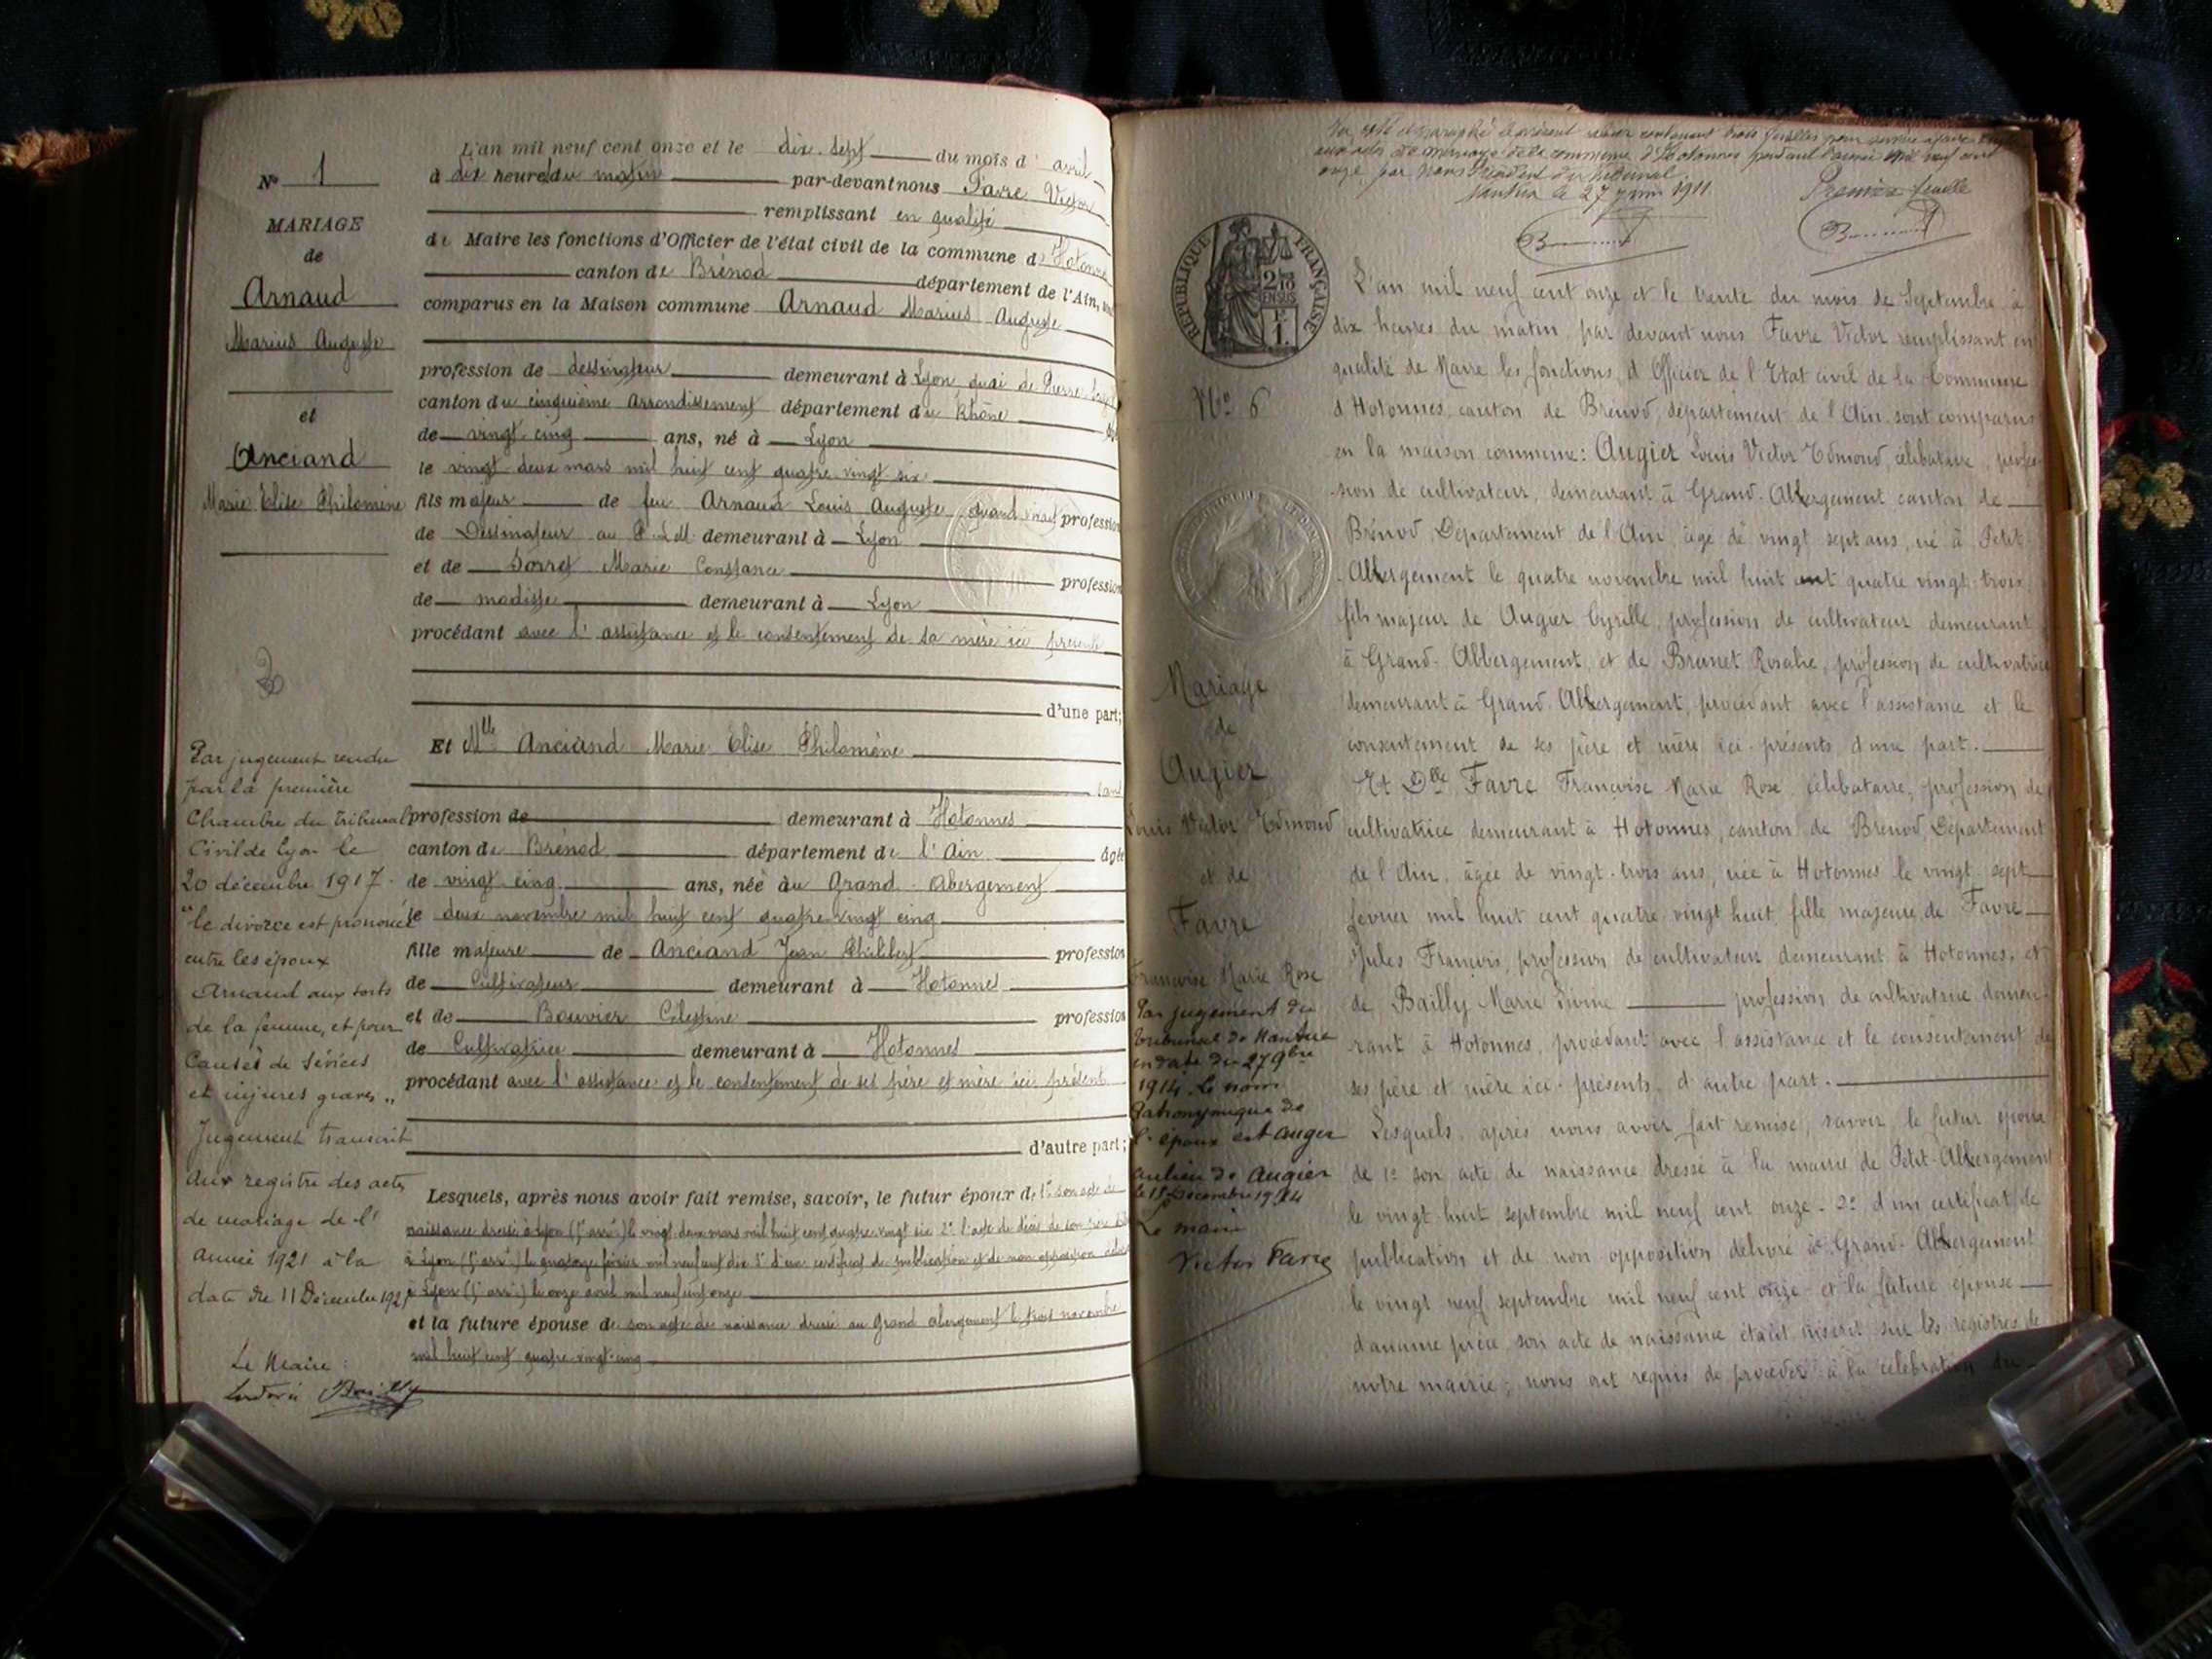 L'an mil neuf cent onze et le dix-sept du mois d'avril
à dix heures du matin par-devant nous Favre Victor
remplissant en qualité
de Maire les fonctions d'Officier de l'état civil de la commune d'Hotonnes
canton de Brénod département de l'Ain,
comparus en la Maison commune Arnaud Marius Auguste
profession de dessinateur demeurant à Lyon quai de Pierre
canton du cinquième arrondissement département du Rhône
de vingt cinq ans, né à Lyon
le vingt deux mars mil huit cent quatre vingt six
fils majeur de feu Arnaud Louis Auguste quand vivait profession
de Dessinateur au P.L.M. demeurant à Lyon
et de Sorret Marie Constance profession
de modiste demeurant à Lyon
procédant avec l'assistance et le consentement de sa mère ici présente
d'une part;
Et Mlle Anciand Marie Elise Philomène
sans
profession de demeurant à Hotonnes
canton de Brénod département de l'Ain âgée
de vingt cinq ans, née au Grand Abergement
le deux novembre mil huit cent quatre-vingt cinq
fille majeure de Anciand Jean Philibert profession
de Cultivateur demeurant à Hotonnes
et de Bouvier Célestine profession
de Cultivatrice demeurant à Hotonnes
procédant avec l'assistance et le consentement de ses père et mère ici présent
d'autre part;
Lesquels, après nous avoir fait remise, savoir, le futur époux de 1° son acte de
naissance dressé à Lyon (5e arrt) le vingt deux mars mil huit cent quatre vingt six 2° l'acte de décès de son père
à Lyon (5e arrt) le quatorze février mil neuf cent dix 3° d'un certificat de publication et de non opposition
à Lyon (5e arrt) le onze avril mil neuf cent onze
et la future épouse de son acte de naissance dressé au Grand abergement le trois novembre
mil huit cent quatre-vingt-cinq
N° 1
MARIAGE
de
Arnaud
Marius Auguste
et
Anciand
Marie Elise Philomène
Par jugement rendu
par la première
Chambre du tribunal
Civil de Lyon le
20 décembre 1917.
"le divorce est prononcé
entre les époux
Arnaud aux torts
de la femme, et pour
Causes de Sévices
et injures graves"
Jugement transcrit
aux registre des actes
de mariage de l'
année 1921 à la
date du 11 Décembre 1921
Le Maire :
Ludovic Bailly
Vu, coté et paraphé le présent cahier contenant trois feuilles pour servir
aux actes de mariage de la commune d'Hotonnes pendant l'année mil neuf cent
onze par nous Président du tribunal
Nantua le 27 juin 1911 Première feuille
RÉPUBLIQUE FRANÇAISE
2/10 EN SUS
1 F.
L'an mil neuf cent onze et le trente du mois de Septembre à
dix heures du matin par devant nous Favre Victor remplissant en
qualité de Maire les fonctions d'Officier de l'Etat civil de la Commune
d'Hotonnes, canton de Brénod, département de l'Ain sont comparus
en la maison commune : Augier Louis Victor Edmond, célibataire, profes-
sion de cultivateur, demeurant à Grand-Abbergement canton de
Brénod Département de l'Ain, âgé de vingt sept ans, né à Petit
Abbergement le quatre novembre mil huit cent quatre vingt-trois
fils majeur de Augier Cyrille, profession de cultivateur demeurant
à Grand-Abbergement, et de Brunet Rosalie, profession de cultivatrice
demeurant à Grand-Abbergement, procédant avec l'assistance et le
consentement de ses père et mère ici-présents d'une part.
Et Dlle Favre Françoise Marie Rose, célibataire, profession de
cultivatrice demeurant à Hotonnes, canton de Brénod Département
de l'Ain, âgée de vingt-trois ans, née à Hotonnes le vingt-sept
février mil huit cent quatre vingt huit, fille majeure de Favre
Jules François, profession de cultivateur demeurant à Hotonnes, et
de Bailly Marie profession de cultivatrice demeu-
rant à Hotonnes, procédant avec l'assistance et le consentement de
ses père et mère ici-présents, d'autre part.
Lesquels, après nous avoir fait remise, savoir, le futur époux
de 1° son acte de naissance dressé à la mairie de Petit-Abbergement
le vingt-huit septembre mil neuf cent onze - 2° d'un certificat de
publication et de non opposition délivré à Grand-Abbergement
le vingt neuf septembre mil neuf cent onze - et la future épouse
d'aucune pièce, son acte de naissance étant inscrit sur les registres de
notre mairie ; nous ont requis de procéder à la célébration du
N° 6
Mariage
de
Augier
Louis Victor Edmond
et de
Favre
Françoise Marie Rose
Par jugement du
tribunal de Nantua
en date du 27 9bre
1914. Le nom
Patronymique de
l'époux est auger
au lieu de Augier
le 15 décembre 1914
Le maire
Victor Favre